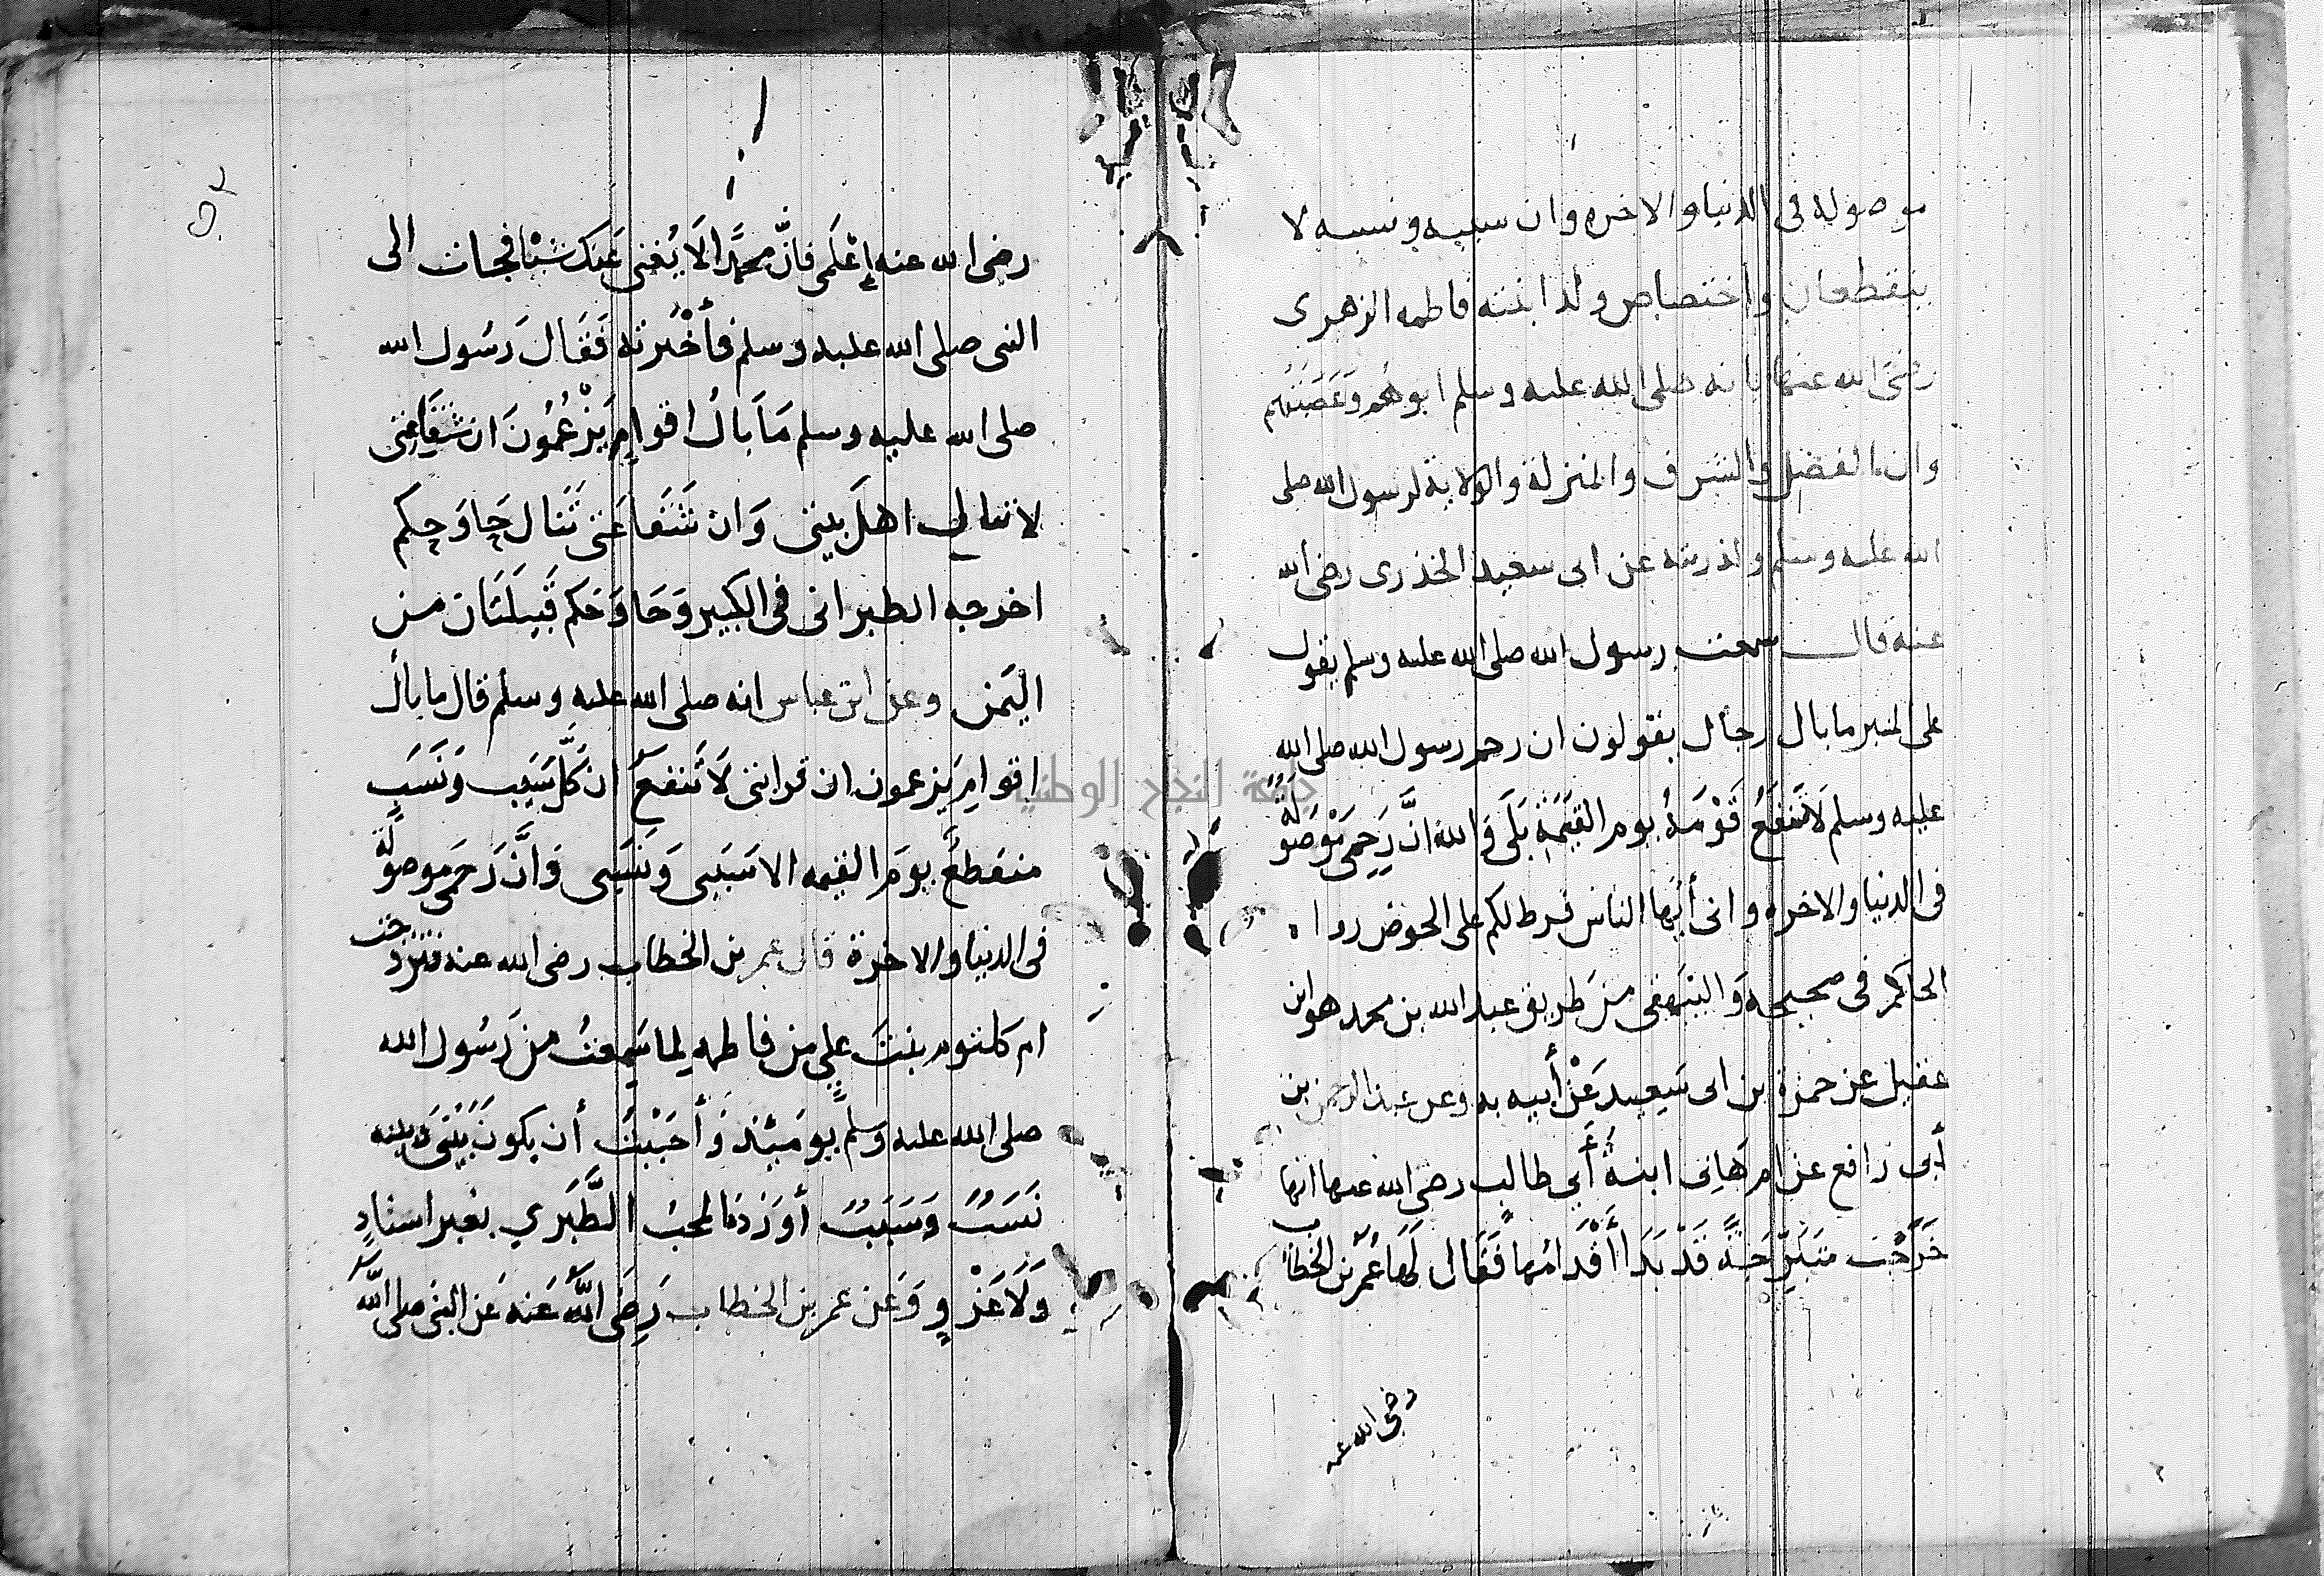 موصولة فى الدنيا والاخره وان سببه ونسبه لا
ينقطعان واختصاص ولد ابنته فاطمه الزهرى
رضى الله عنها بانه صلى الله عليه وسلم ابوهم وعَصَبَتُهم
وان الفضل والشرف والمنزلة والولاية لرسول الله صلى
الله عليه وسلم ولذريته عن ابى سعيد الخذرى رضى الله
عنه قال سمعت رسول الله صلى الله عليه وسلم يقول
على المنبر ما بال رجال يقولون ان رحم رسول الله صلى الله
عليه وسلم لَا تَنفَعُ قَوْمَهُ يوم القيمة بَلَى وَالله انَّ رَحِمِى مَوْصُولَةٌ
فى الدنيا والاخره وانى أيّها الناس فرط لكم على الحوض رواه
الحاكم فى صحيحه وَالبَيهَقى من طريق عبد الله بن محمد هو ابن
عقيل عن حمزة بن ابى سَعِيد عَنْ أبيه به وعن عبد الرحمن بن
أبى رافع عن ام هَانِى ابنة أَبى طالب رضى الله عنها انها
خَرَجَت متَبَرِّجَةً قَدْ بَدَا أَقْدَامُها فَقَال لَهَا عُمَرُ بن الخطاب
رضى الله عنه
رضى الله عنه إعْلَمى فانَّ محمَّدًا لَا يُغنى عَنك شيْا فجات الى
النبى صلى الله عليه وسلم فأَخْبرته فَقَال رَسُول الله
صلى الله عليه وسلم مَا بَالُ اقوامٍ يَزْعُمُونَ ان شفَاعَتى
لا تنال اهلَ بيتى وَان شَفَاعَتى تَنَال حَا وَحكم
اخرجه الطبرانى فى الكبير وَحَا وَحَكم قَبِيلَتَان من
اليَمَن وعن ابن عباس انه صلى الله عليه وسلم قال ما بأل
اقوامٍ يَزعمون ان قرابتى لَا تَنفعُ ان كُلَّ سَبَبٍ وَنَسَبٍ
منقطعٌ يومَ القيمه الا سَبَبى وَنَسَبى وَانَّ رَحمى موصولَةٌ
فى الدنيا والاخرة قال عمر بن الخطاب رضى الله عنه فتزوجت
ام كلثوم بنتَ علي من فاطمه لما سَمعتُ من رَسُول الله
صلى الله عليه وسلم يومَئِذ وَأحبَبْتُ أن يكونَ بَيْنى وَبينه
نَسَبٌ وَسَبَبٌ أورَدَه المحبُ الطَّبَري بغير اسنادٍ
وَلَا عَزْوٍ وَعَن عمر بن الخطاب رَضِىَ اللَّهُ عَنه عَن النبى صلى اللَّه
جامعة النجاح الوطنية